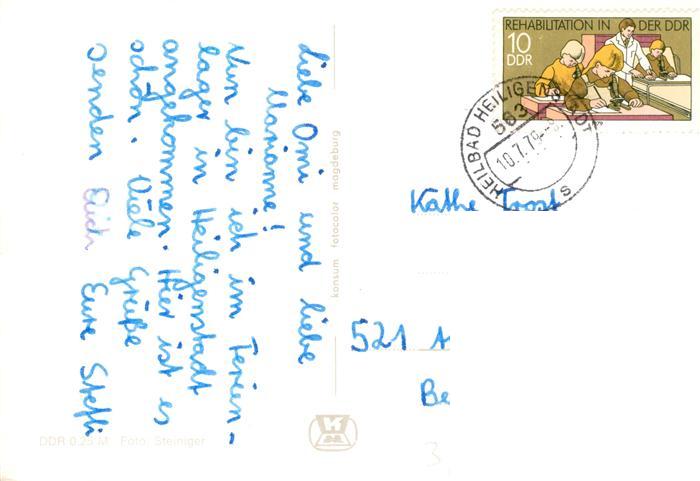 Liebe Omi und liebe
Marianne!
Nun bin ich im Ferien-
lager in Heiligenstadt
angekommen. Hier ist es
schön. Viele Grüße
senden Euch
Eure Steffi
konsum fotocolor magdeburg
DDR 0.25 M Foto: Steiniger
REHABILITATION IN DER DDR
10
DDR
HEILBAD HEILIGENSTADT
10.7.79
Käthe Trost
521 A
Be
3